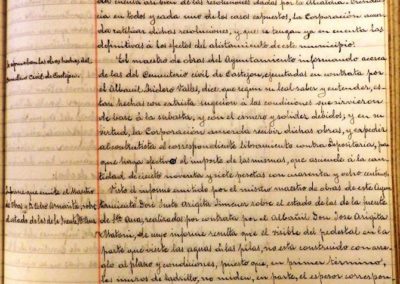 da cuenta así bien de las resoluciones dadas por la Alcaldía
en todos y cada uno de los casos expuestos, la Corporación acuer-
da ratificar dichas resoluciones, y que se tengan ya en cuenta las
definitivas a los efectos del alistamiento de este municipio.
Se aprueban las obras hechas del
Cementerio Civil de Castejon.
El maestro de obras del Ayuntamiento informando acerca
de las del Cementerio civil de Castejon, ejecutadas en contrata por
el Albañil Isidoro Valles, dice que según su leal saber y entender, es-
tan hechas con extricta sujecion a las condiciones que sirvieron
de base a la subasta, y con el esmero y solidez debidos; y en su
virtud, la Corporacion acuerda recibir dichas obras, y expedir
al contratista el correspondiente libramiento contra Depositaría, pa-
ra que haga efectivo el importe de las mismas, que asciende a la can-
tidad de ciento noventa y siete pesetas con cuarenta y ocho centms.
Informe que emite el Maestro
de Obras, D. Justo Arrigita, sobre
el estado de las de la Fuente Sta Ana.
Visto el informe emitido por el mismo maestro de obras de este Ayun-
tamiento José Justo Arigita Jimenez sobre el estado de las de la fuente
de Sta Ana, realizadas por contrata por el Albañil Don José Arigita
de cuyo informe resulta que el visible del pedestal en la
parte que vierte las aguas a las pilas, no está construido con arre-
glo al plano y condiciones, puesto que, en primer termino,
los muros de ladrillo, no miden, en parte, el espesor correspon-